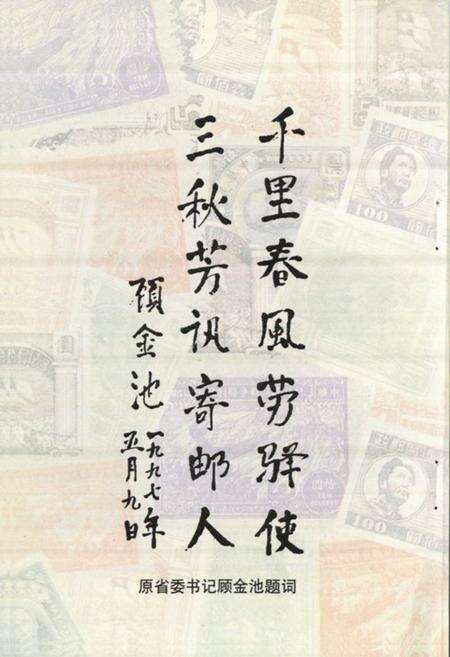 千里春風劳驿使
三秋芳讯寄邮人
顾金池
一九九七年
五月九日
原省委书记顾金池题词
100
100